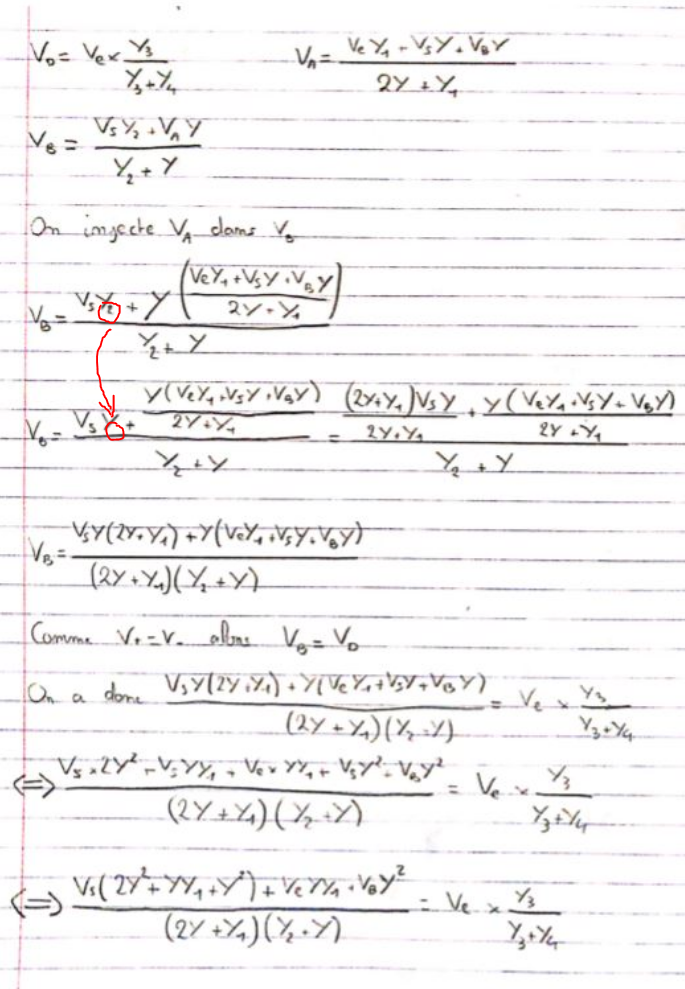 V_D = Ve × Y_3 / (Y_3 + Y_4)    V_A = (Ve Y_1 + V_S Y + V_B Y) / (2Y + Y_1)
V_B = (V_S Y_2 + V_A Y) / (Y_2 + Y)
On injecte V_A dans V_B
V_B = (V_S Y_2 + Y ((Ve Y_1 + V_S Y + V_B Y) / (2Y + Y_1))) / (Y_2 + Y)
V_B = (V_S Y + Y(Ve Y_1 + V_S Y + V_B Y) / (2Y + Y_1)) / (Y_2 + Y) = ((2Y + Y_1) V_S Y / (2Y + Y_1) + Y(Ve Y_1 + V_S Y + V_B Y) / (2Y + Y_1)) / (Y_2 + Y)
V_B = (V_S Y(2Y + Y_1) + Y(Ve Y_1 + V_S Y + V_B Y)) / ((2Y + Y_1)(Y_2 + Y))
Comme V+ = V- alors V_B = V_D
On a donc (V_S Y(2Y + Y_1) + Y(Ve Y_1 + V_S Y + V_B Y)) / ((2Y + Y_1)(Y_2 + Y)) = Ve × Y_3 / (Y_3 + Y_4)
⟺ (V_S × 2Y² + V_S Y Y_1 + Ve × Y Y_1 + V_S Y² + V_B Y²) / ((2Y + Y_1)(Y_2 + Y)) = Ve × Y_3 / (Y_3 + Y_4)
⟺ (V_S(2Y² + Y Y_1 + Y²) + Ve Y Y_1 + V_B Y²) / ((2Y + Y_1)(Y_2 + Y)) = Ve × Y_3 / (Y_3 + Y_4)